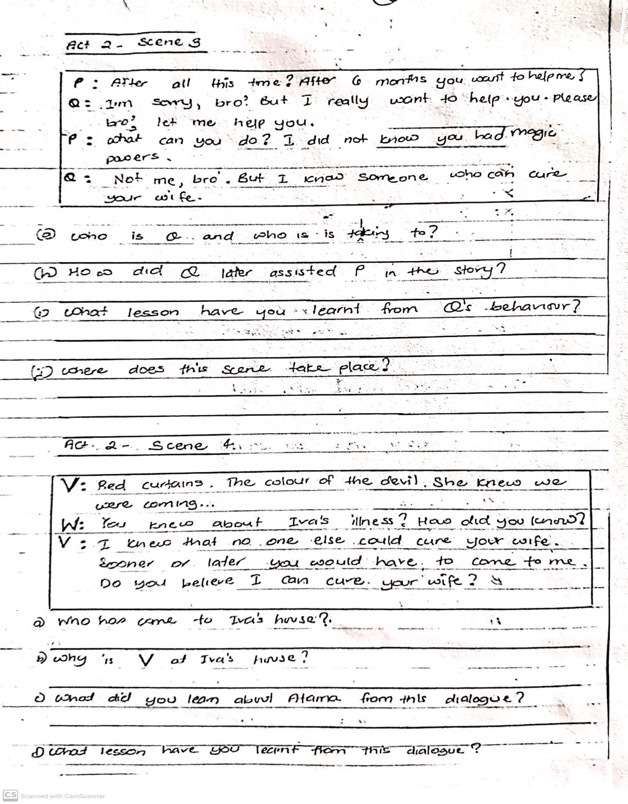 Act 2 - Scene 3
P : After all this time? After 6 months you want to help me?
Q : I'm sorry, bro? But I really want to help you. Please
bro, let me help you.
P : what can you do? I did not know you had magic
powers.
Q : Not me, bro'. But I know someone who can cure
your wife.
who is Q and who is is taking to?
(h) How did Q later assisted P in the story?
(i) what lesson have you learnt from Q's behaviour?
(j) where does this scene take place?
Act 2 - Scene 4
V : Red curtains. The colour of the devil. She knew we
were coming...
W : You knew about Iva's illness? How did you know?
V : I knew that no one else could cure your wife.
Sooner or later you would have to come to me.
Do you believe I can cure your wife?
a) Who has come to Iva's house?
b) why is V at Iva's house?
c) what did you learn about Atama from this dialogue?
d) what lesson have you learnt from this dialogue?
CS Scanned with CamScanner